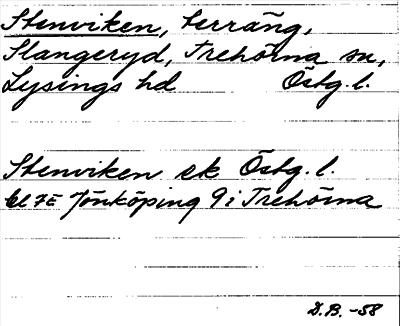 Stenviken, terräng,
Slangeryd, Trehörna sn,
Lysings hd Östg. l.
Stenviken ek Östg. l.
bl 7E Jönköping 9 i Trehörna
D.B. -58